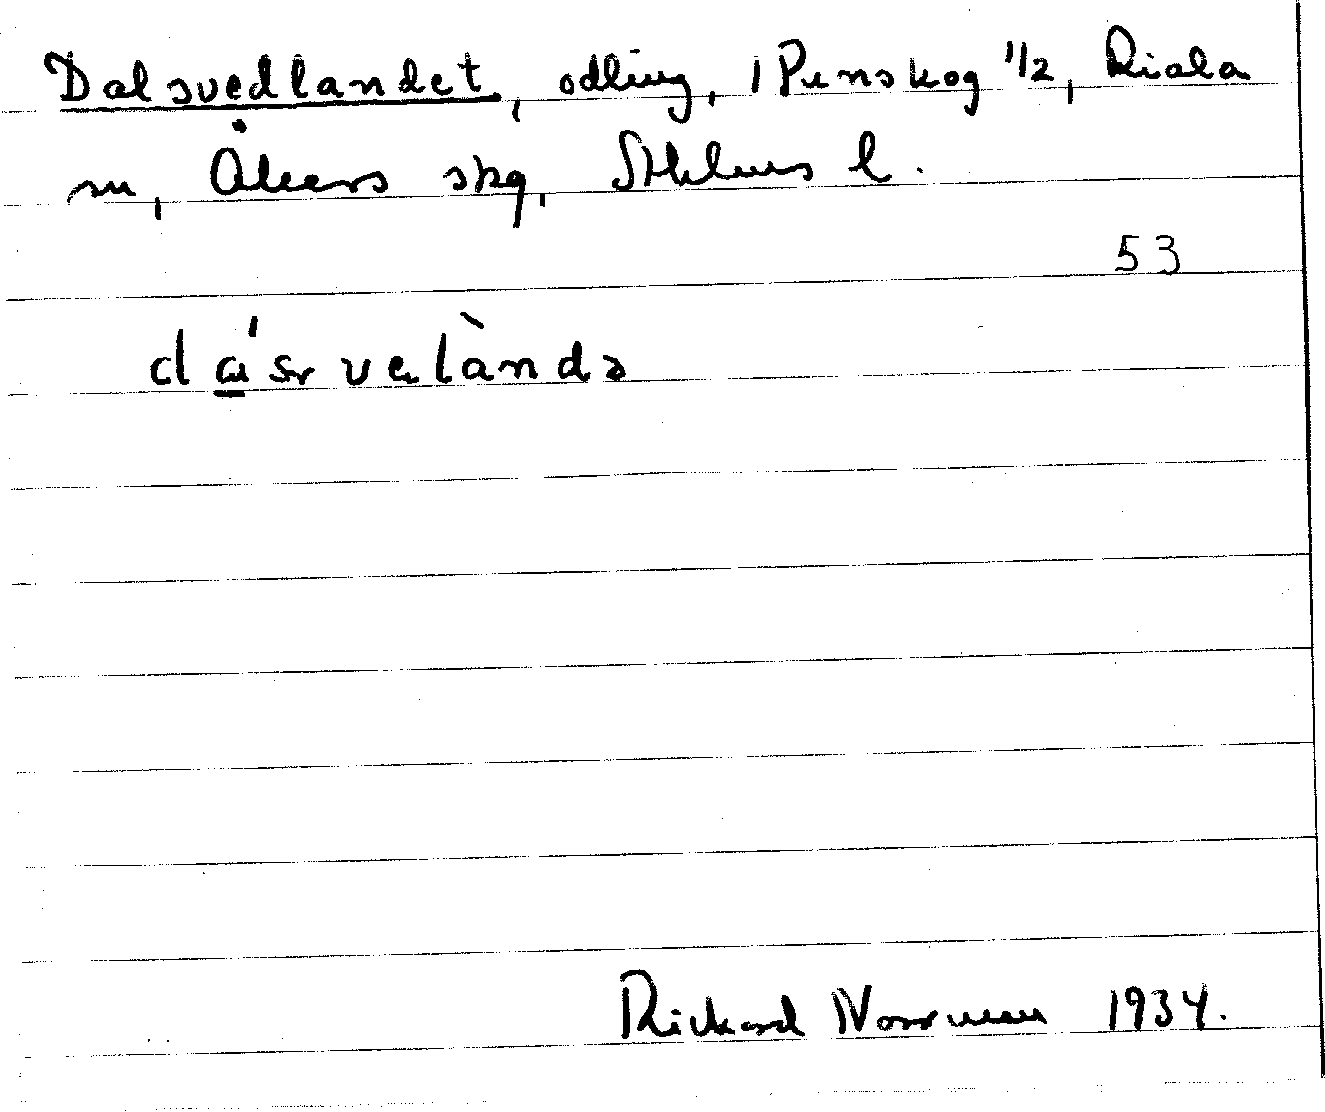 Dalsvedlandet, odling, i Penskog 1/2, Riala
sn, Åkers skg, Sthlms l.
53
Rickard Norrman 1934.